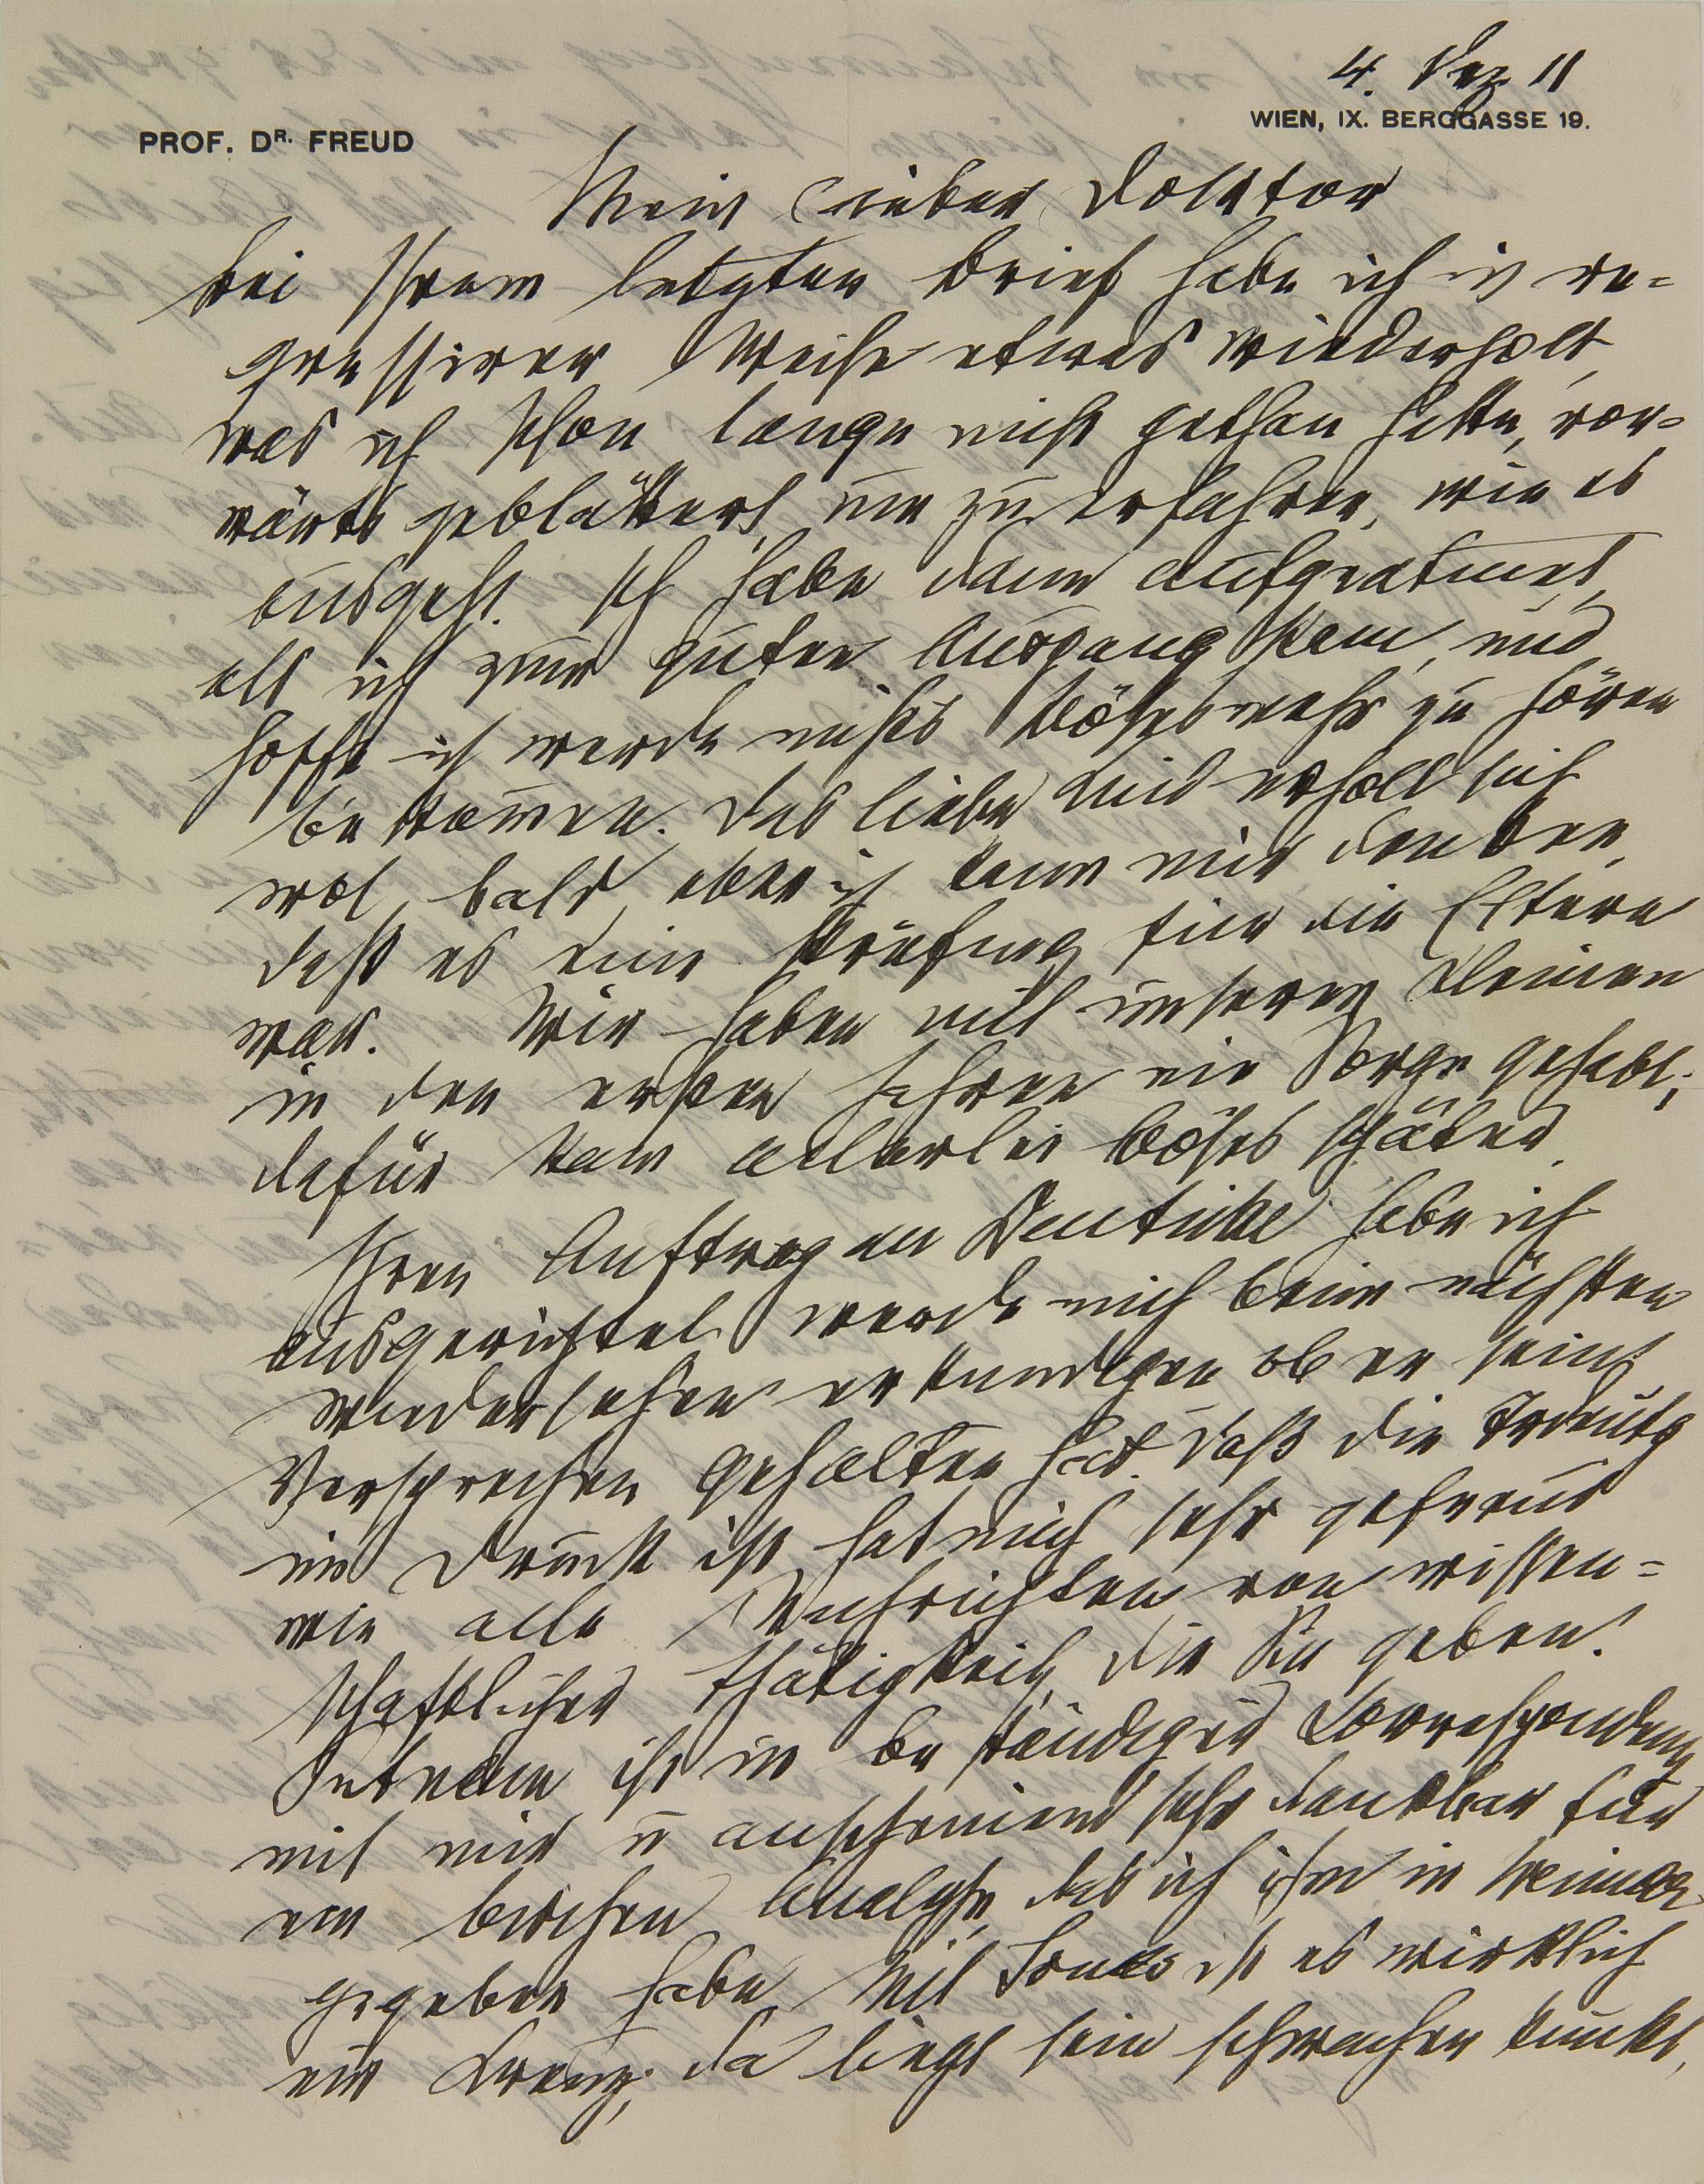 4. Dez 11
WIEN, IX. BERGGASSE 19.
PROF. DR. FREUD
Mein lieber Doktor
Bei Ihrem letzten Brief habe ich in re-
gressiver Weise etwas wiederholt,
was ich schon lange nicht gethan hatte, vor-
wärts geblättert, um zu erfahren, wie es
ausgeht. Ich habe dann aufgeatmet,
als ich zum guten Ausgang kam, und
hoffe ich werde nichts Böses mehr zu hören
bekommen. Das liebe Kind erholt sich
wol bald, aber ich kann mir denken,
daß es eine Prüfung für die Eltern
war. Wir haben mit unseren Kleinen
in den ersten Jahren nie Sorge gehabt;
dafür kam allerlei Böses später.
Ihren Auftrag an Deuticke habe ich
ausgerichtet, werde mich beim nächsten
Wiedersehen erkundigen ob er sein
Versprechen gehalten hat. Daß die Trdeutg
im Druck ist hat mich sehr gefreut
wie alle Nachrichten von wissen-
schaftlicher Thätigkeit, die Sie geben.
Putnam ist in beständiger Correspondenz
mit mir u anscheinend sehr dankbar für
ein bischen Analyse, das ich ihm in Weimar
gegeben habe. Mit Jones ist es wirklich
ein Kreuz; da liegt sein schwacher Punkt,